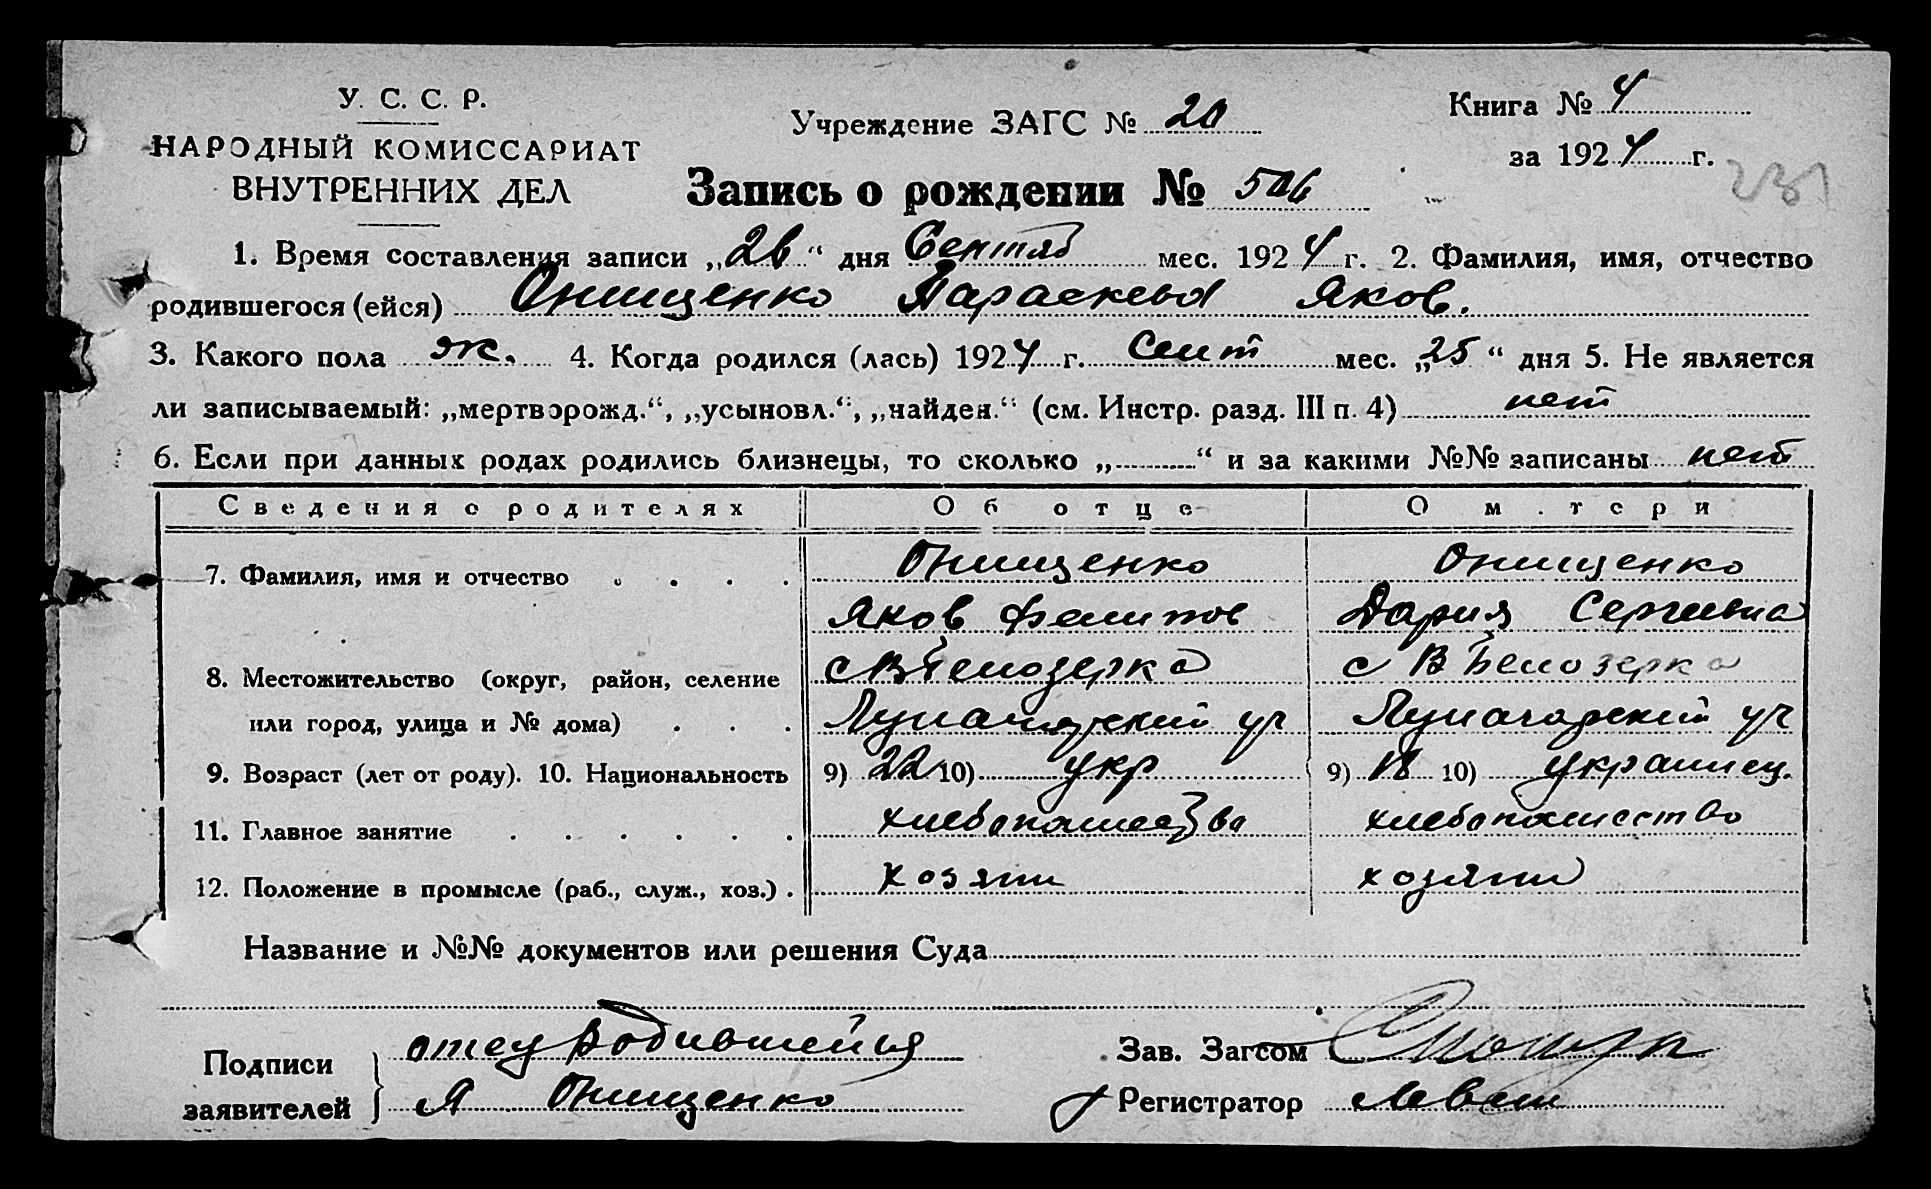 У. С. С. Р.
НАРОДНЫЙ КОМИССАРИАТ
ВНУТРЕННИХ ДЕЛ
Учреждение ЗАГС № 20
Книга № 4
за 1924 г.
231
Запись о рождении № 506
1. Время составления записи „26“ дня Сентяб мес. 1924 г. 2. Фамилия, имя, отчество
родившегося (ейся) Онищенко Параскева Яков.
3. Какого пола ж. 4. Когда родился (лась) 1924 г. Сент мес. „25“ дня 5. Не является
ли записываемый: „мертворожд.“, „усыновл.“, „найден.“ (см. Инстр. разд. III п. 4) нет
6. Если при данных родах родились близнецы, то сколько „ “ и за какими №№ записаны нет
Сведения о родителях Об отце О м.тери
7. Фамилия, имя и отчество Онищенко Онищенко
Яков Филипов Дария Сергиевна
8. Местожительство (округ, район, селение с В Белозерка с В Белозерка
или город, улица и № дома) Луначарский Луначарский
9. Возраст (лет от роду). 10. Национальность 9) 22 10) укр 9) 18 10) украинец.
11. Главное занятие хлебопашество хлебопашество
12. Положение в промысле (раб., служ., хоз.) хозяин хозяин
Название и №№ документов или решения Суда
Подписи
заявителей
отец родившейся
Я Онищенко
Зав. Загсом
Регистратор